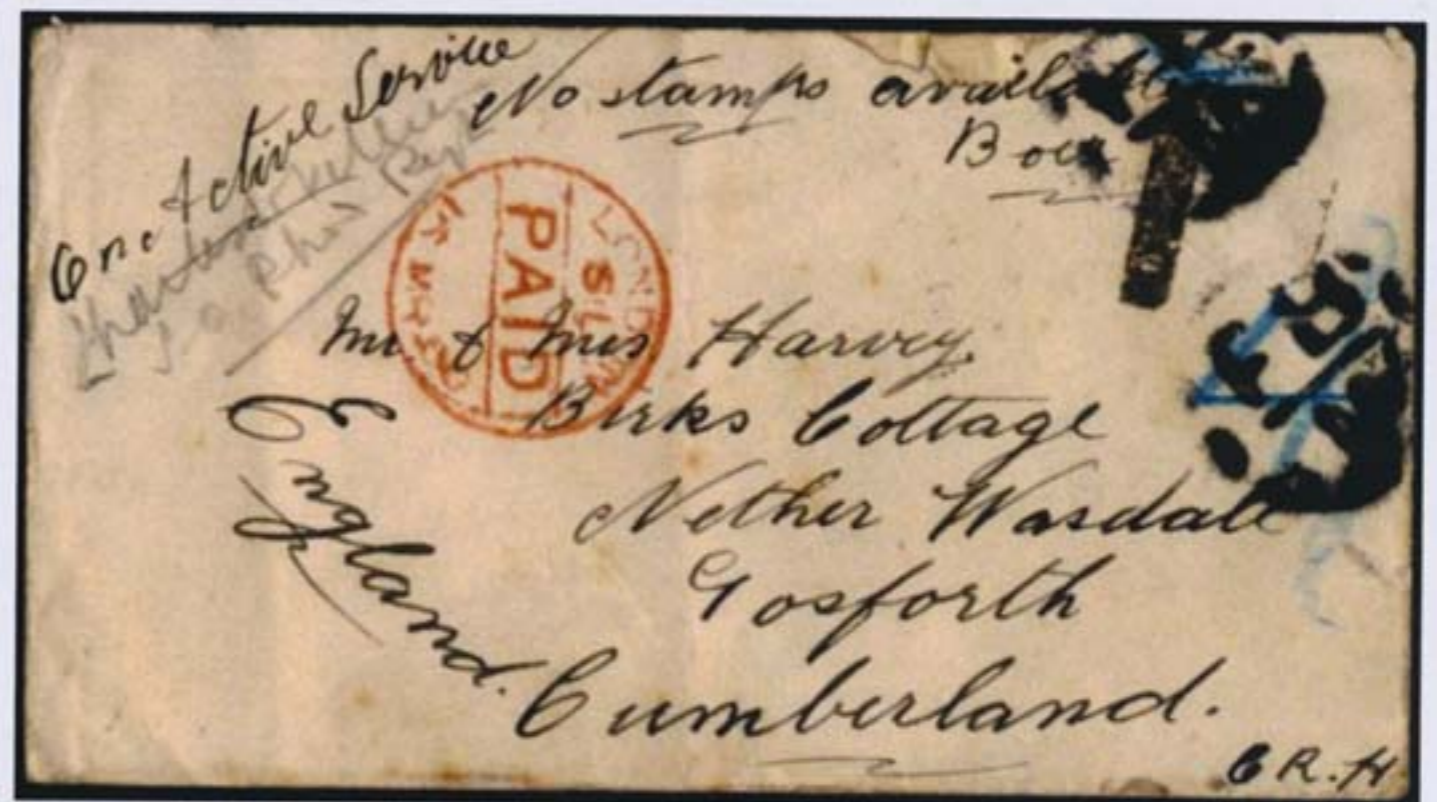 On Active Service
No stamps available
LONDON
PAID
Mr & Mrs Harvey.
Birks Cottage
Nether Wasdale
Gosforth
Cumberland.
England.
T